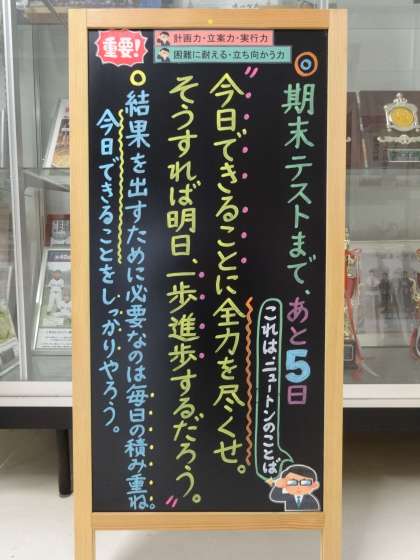 重要!
計画力・立案力・実行力
困難に耐える・立ち向かう力
期末テストまで、あと5日
"今日できることに全力を尽くせ。
そうすれば明日、一歩進歩するだろう。"
これは、ニュートンのことば
結果を出すために必要なのは毎日の積み重ね。
今日できることをしっかりやろう。